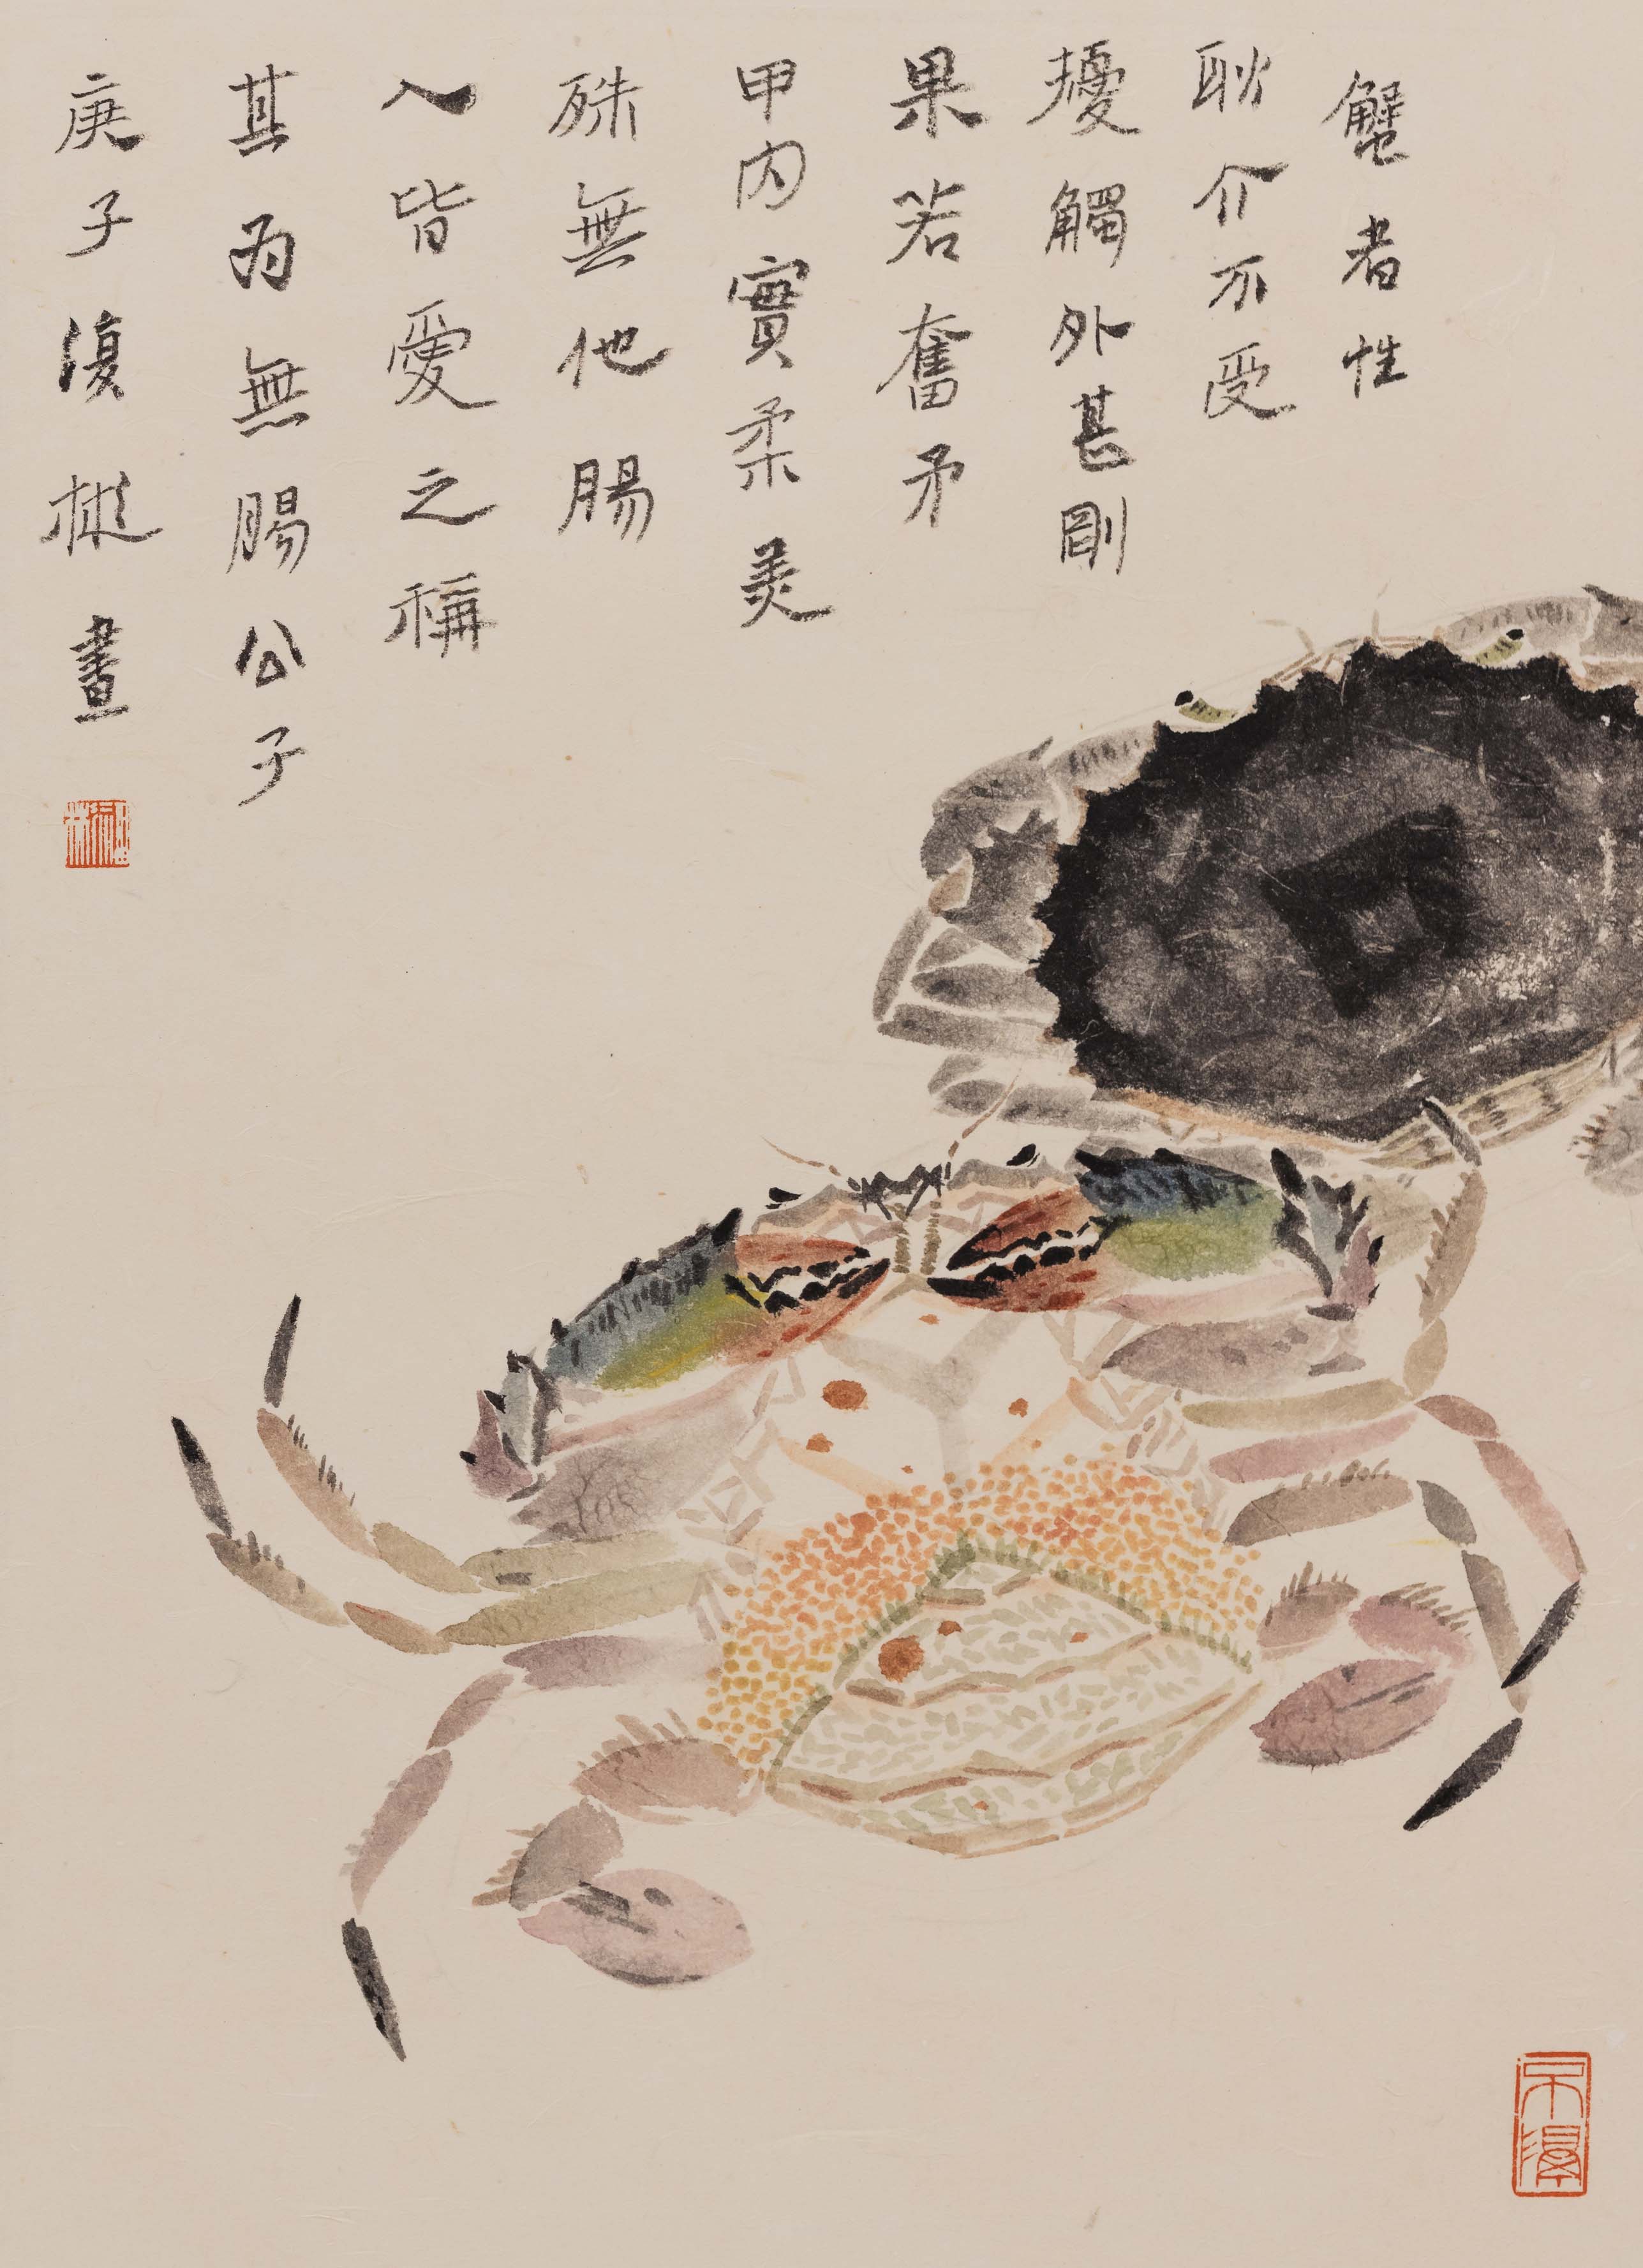 蟹者性
耿介不受
擾觸外甚剛
果若奮矛
甲内實柔美
殊無他腸
人皆愛之稱
其為無腸公子
庚子復 畫